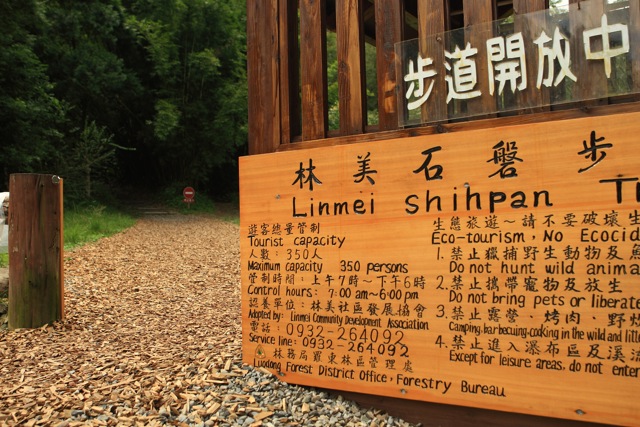 步道開放中
林美石磐步
Linmei shihpan
遊客總量管制
Tourist capacity
人數：350人
Maximum capacity 350 persons
管制時間：上午7時～下午6時
Control hours: 7:00 am~6:00 pm
認養單位：林美社區發展協會
Adopted by: Linmei Community Development Association
電話：0932-264092
Service line: 0932-264092
林務局羅東林區管理處
Luodong Forest District Office, Forestry Bureau
生態旅遊～請不要破壞生
Eco-tourism, No Ecocid
1.禁止獵捕野生動物及
Do not hunt wild anima
2.禁止攜帶寵物及放生
Do not bring pets or liberate
3.禁止露營 烤肉、野炊
Camping,barbecuing,cooking in the wild and litte
4.禁止進入瀑布區及溪
Except for leisure areas, do not enter